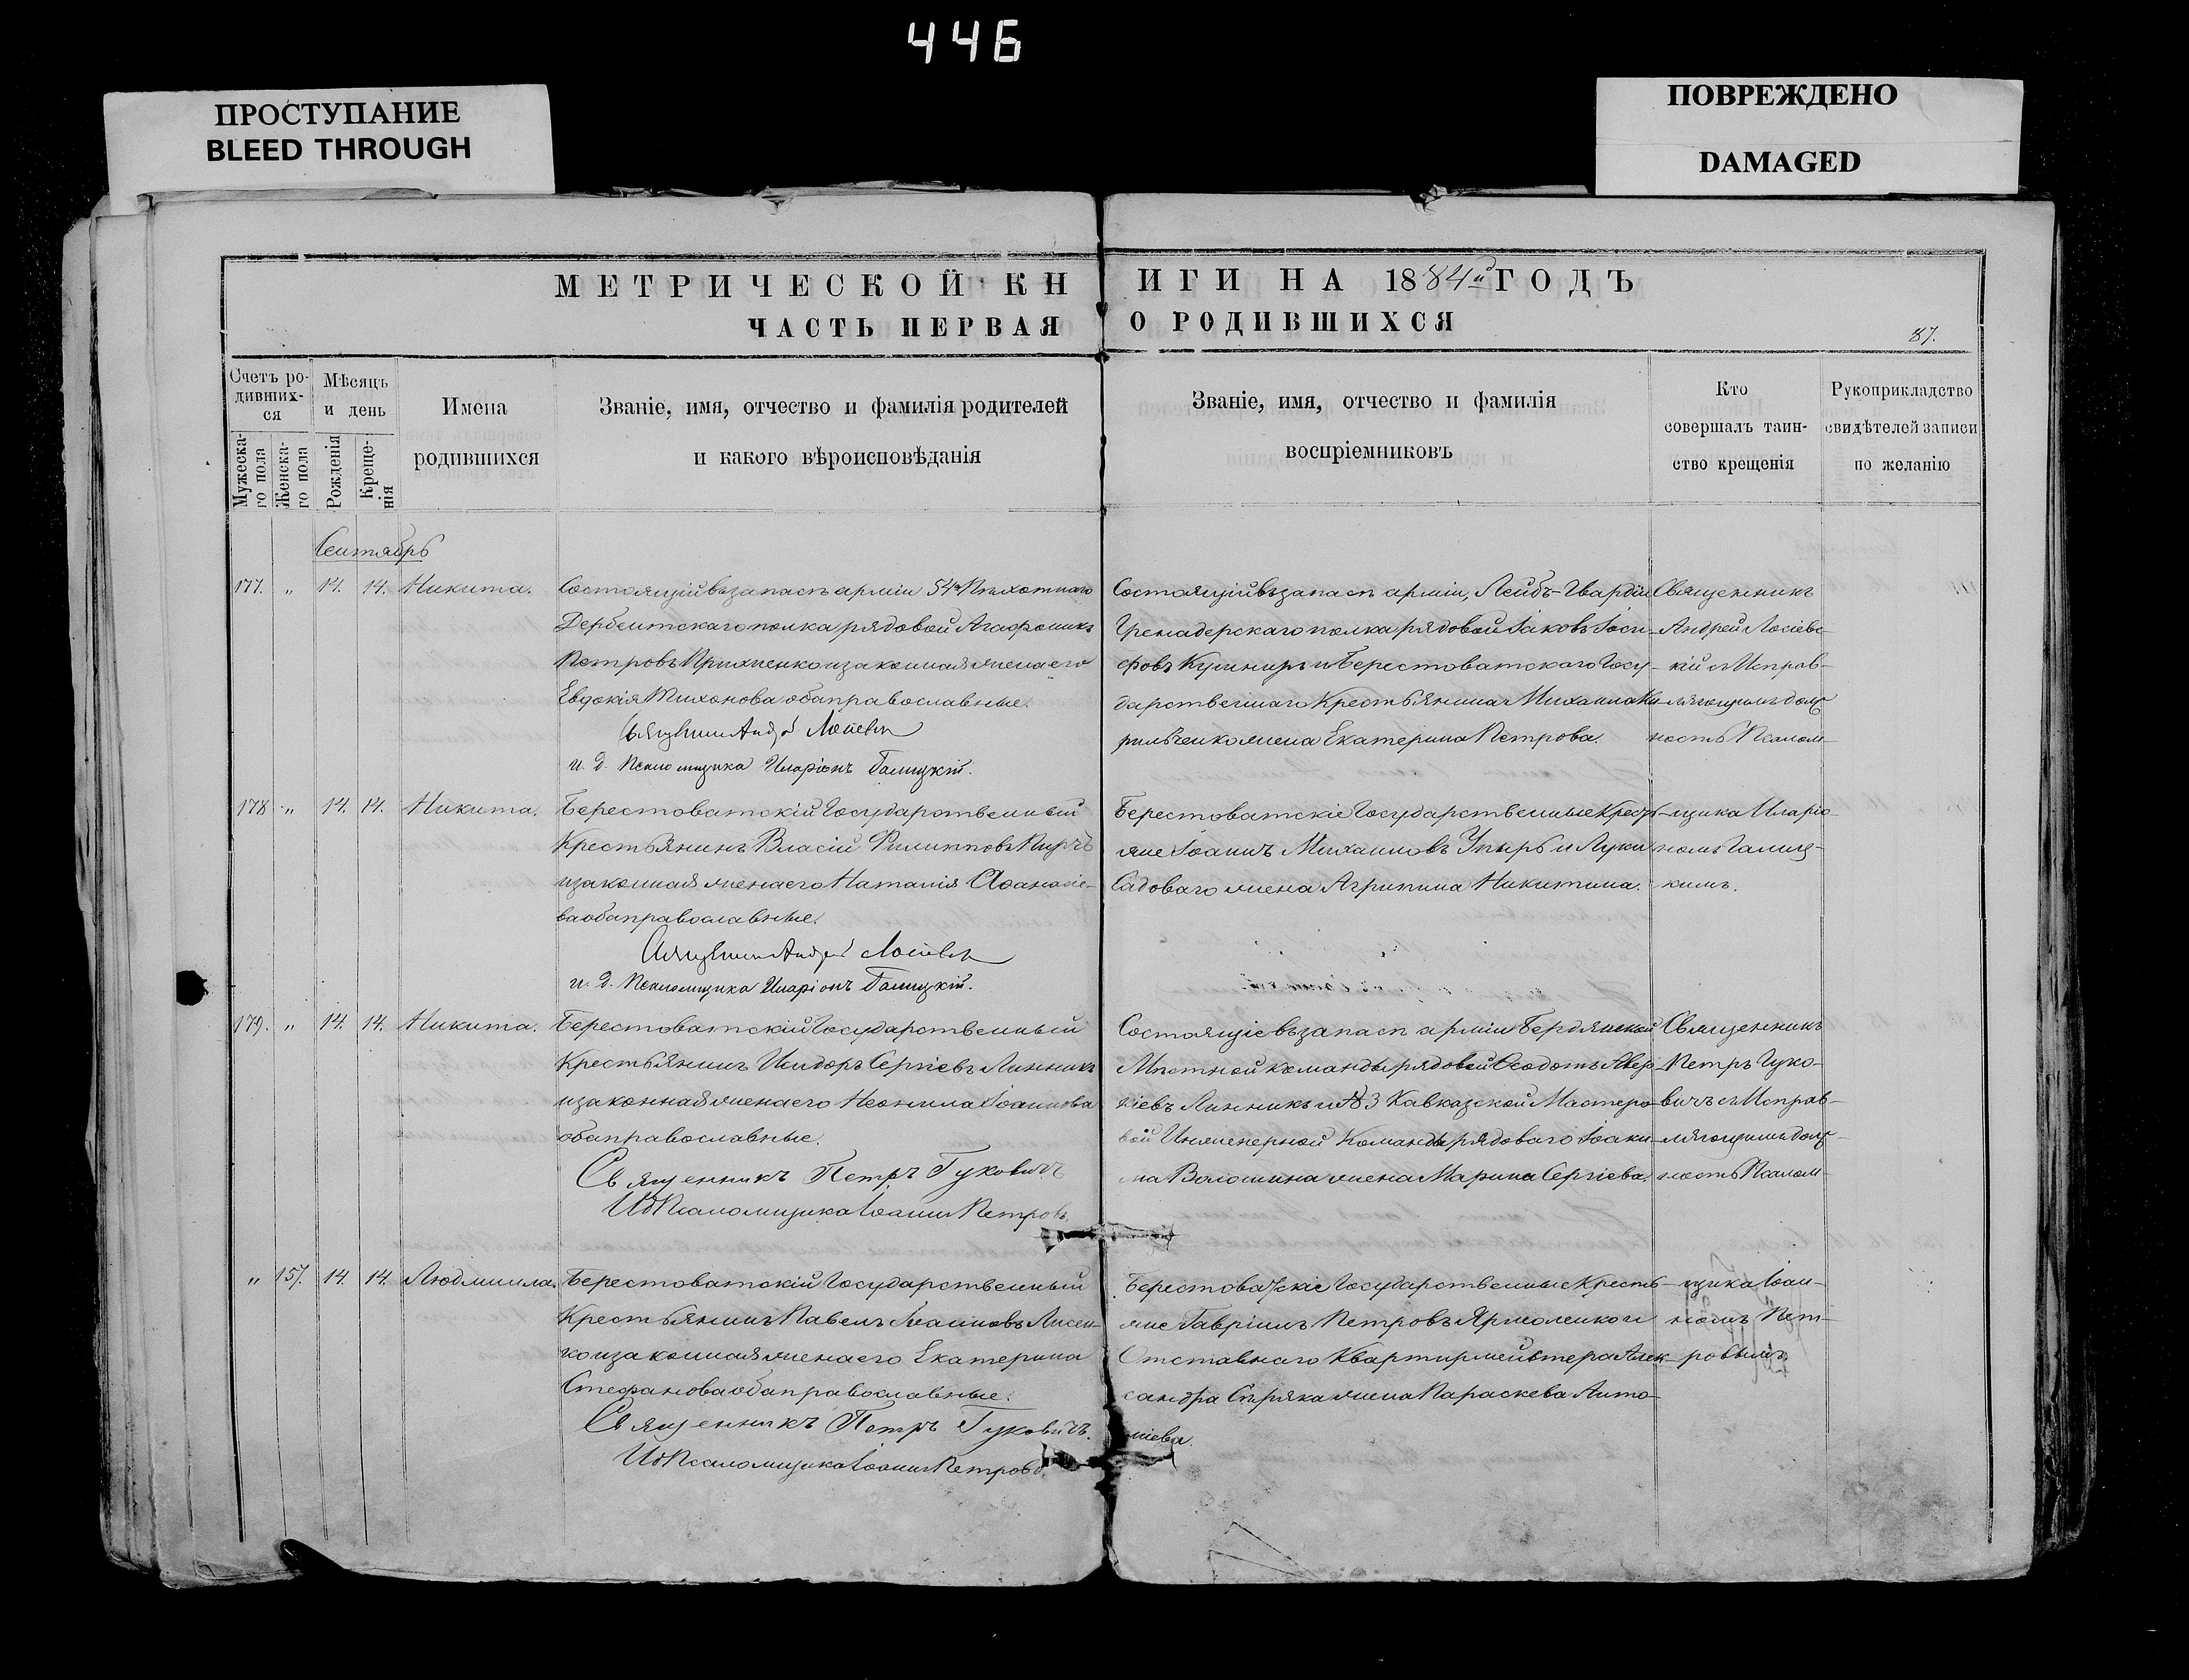 446
ПРОСТУПАНИЕ
BLEED THROUGH
ПОВРЕЖДЕНО
DAMAGED
МЕТРИЧЕСКОЙ КНИГИ НА 1884й ГОДЪ
ЧАСТЬ ПЕРВАЯ О РОДИВШИХСЯ
87.
Счетъ ро-
дивших-
ся
Мужеска-
го пола
Женска-
го пола
Мѣсяцъ
и день
Рожденія
Креще-
нія
Имена
родившихся
Званіе, имя, отчество и фамилія родителей
и какого вѣроисповѣданія
Званіе, имя, отчество и фамилія
воспріемниковъ
Кто
совершалъ таин-
ство крещенія
Рукоприкладство
свидѣтелей записи
по желанію
Сентябрь
177. " 14. 14. Никита.
Состоящій въ запасѣ арміи 54го Пѣхотнаго
Дербентскаго полка рядовой Агафоникъ
Петровъ и законная жена его
Евдокія Тихонова оба православные.
Священникъ Андрей
и. д. Псаломщика Иларіонъ Галицкій.
Состоящій въ запасѣ арміи, Лейбъ-Гвардіи
Гренадерскаго полка рядовой Іаковъ Іоси-
фовъ и Берестоватскаго Госу-
дарственнаго Крестьянина Михаила Ки-
рильченко жена Екатерина Петрова.
Священникъ
Андрей Лосіевс-
кій съ Исправ-
ляющимъ долж
ность Псалом-
178 " 14. 14. Никита.
Берестоватскій Государственный
Крестьянинъ Власій Филипповъ
и законная жена его Наталія Аѳанасіе-
ва оба православные.
Священникъ Андрей
и. д. Псаломщика Иларіонъ Галицкій.
Берестоватскіе Государственные Кресть-
яне Іоаннъ Михаиловъ Упырь и Луки
Садоваго жена Агрипина Никитина.
щика Иларіо-
номъ Галиц-
кимъ.
179. " 14. 14. Никита.
Берестоватскій Государственный
Крестьянинъ Исидоръ Сергіевъ Линникъ
и законная жена его Неонила Іоаннова
оба православные.
Священникъ Петръ Гуковичъ
ИД Псаломщика Іоаннъ Петровъ.
Состоящіе въ запасѣ арміи Бердянской
Мѣстной команды рядовой Ѳеодотъ Авер-
кіевъ Линникъ и № 3 Кавказской Мастеро-
вой Инженерной Команды рядоваго Іоаки-
ма Волошина жена Марина Сергіева.
Священникъ
Петръ Гуко-
вичъ съ Исправ-
ляющимъ долж-
ность Псалом-
" 157. 14. 14. Людмила.
Берестоватскій Государственный
Крестьянинъ Павелъ Іоанновъ Лисен-
ко и законная жена его Екатерина
Стефанова оба православные.
Священникъ Петръ Гуковичъ.
ИД Псаломщика Іоаннъ Петровъ.
Берестоватскіе Государственные Кресть-
яне Гавріилъ Петровъ Ярмоленко и
Отставнаго Квартирмейстера Алек-
сандра жена Параскева Анто-
ніева.
щика Іоан-
номъ Пет-
ровымъ.